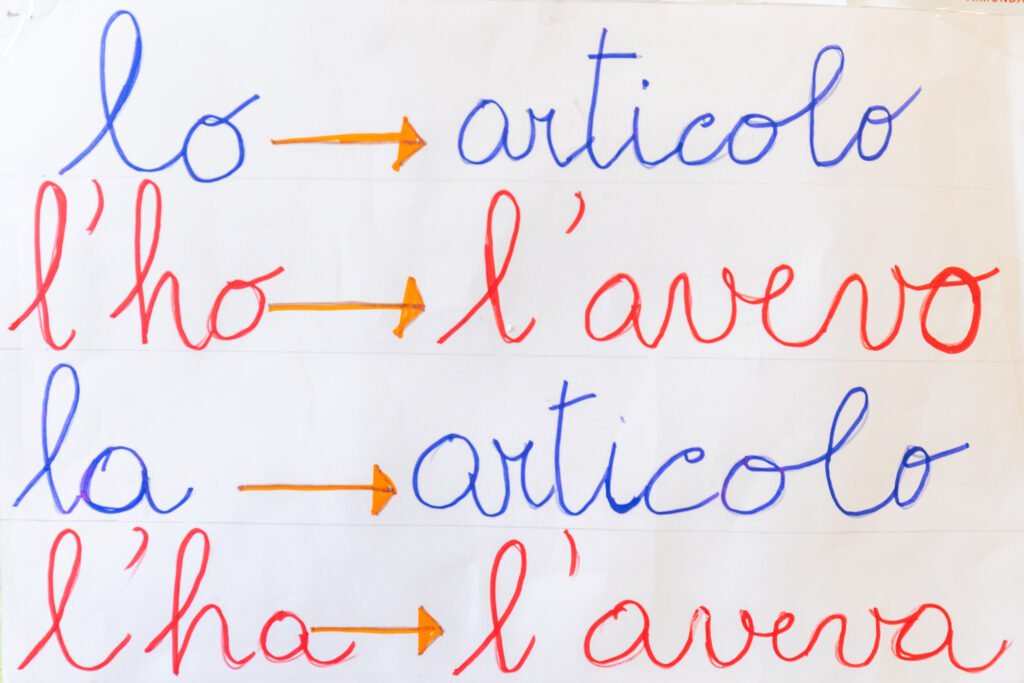 lo → articolo
l'ho → l'avevo
la → articolo
l'ha → l'aveva